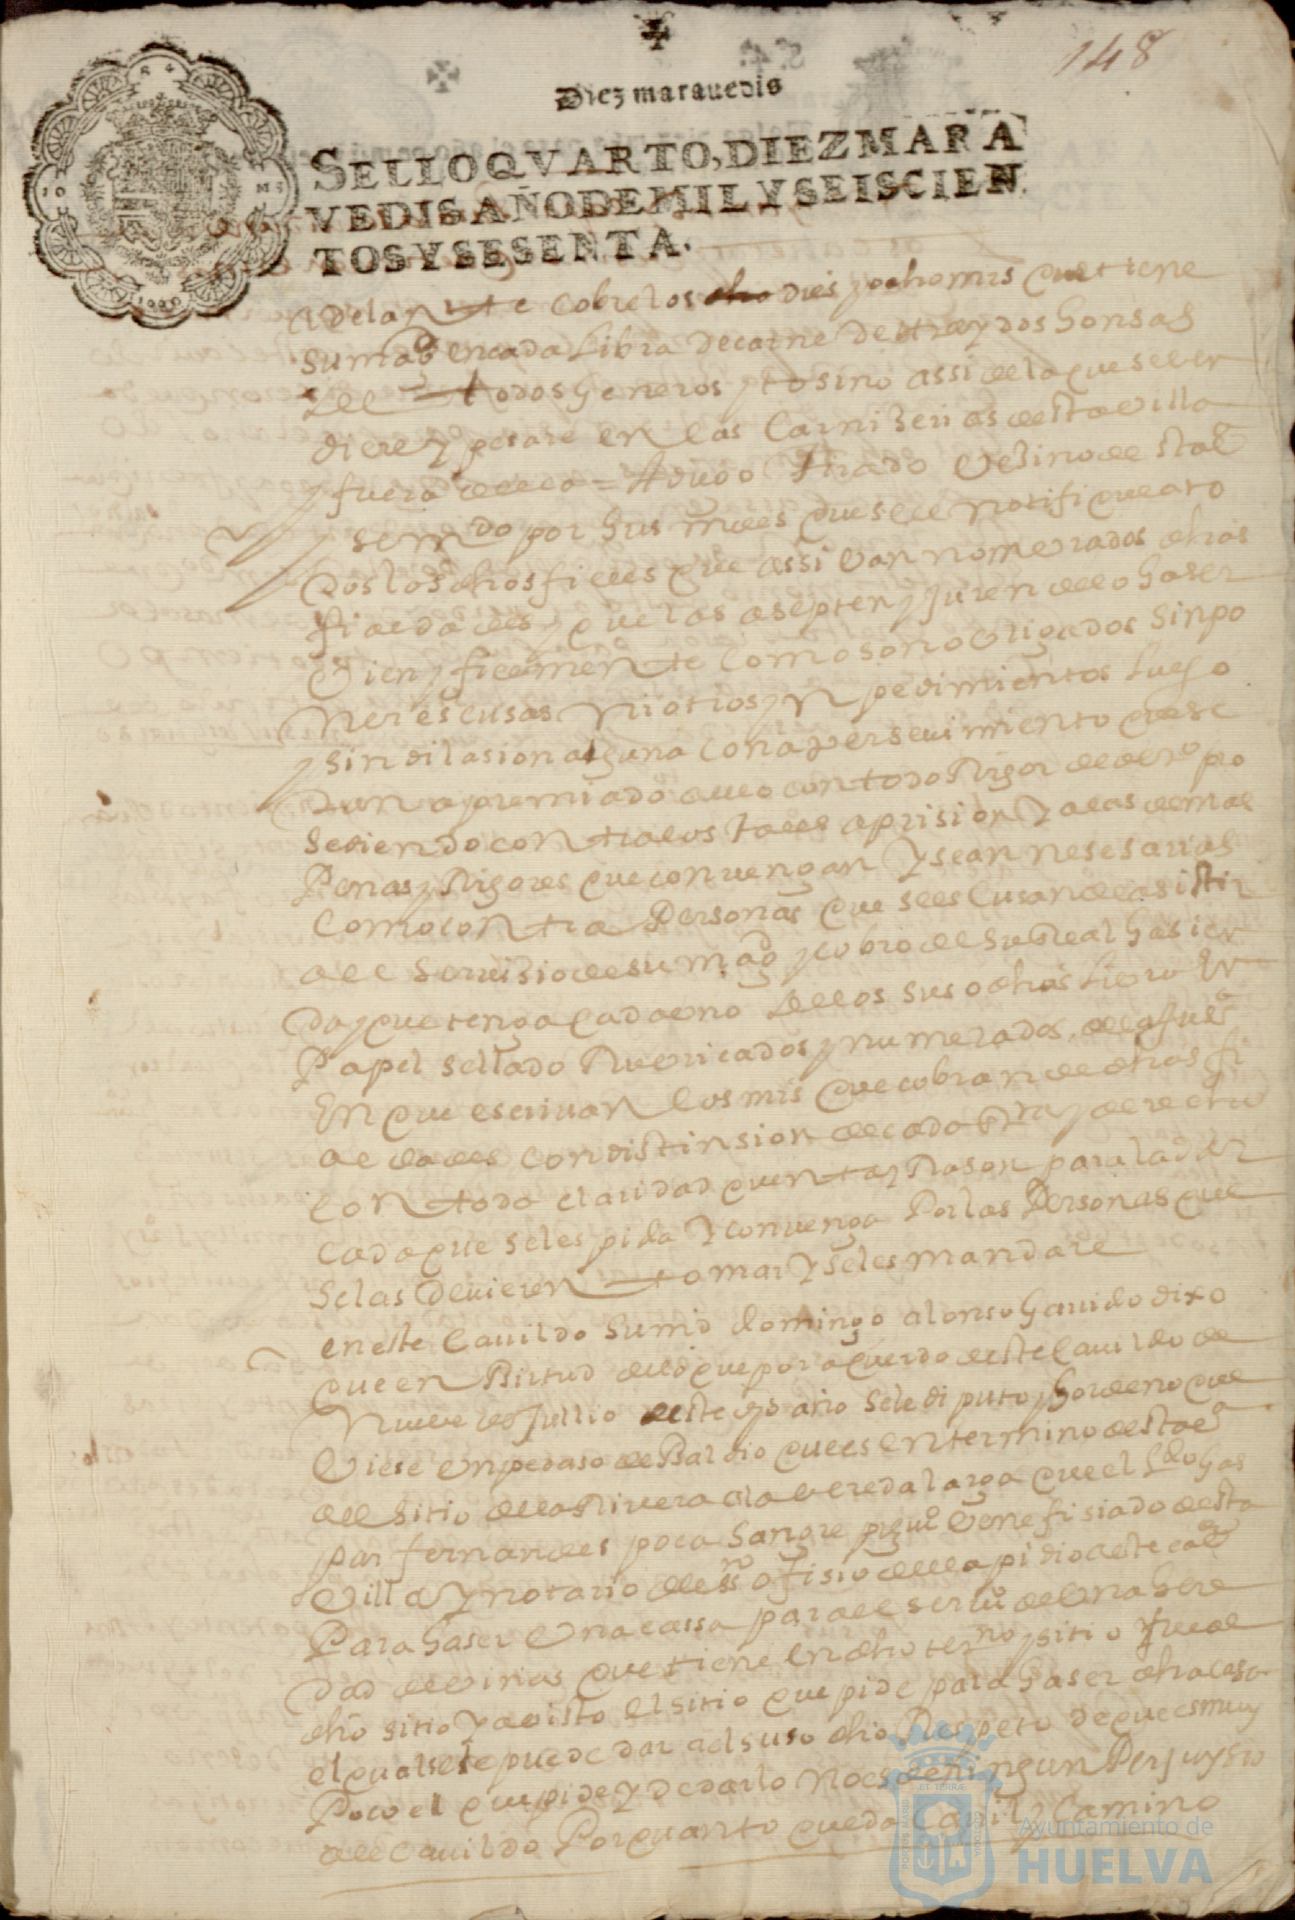 148
Diez marauedis
SELLO QVARTO, DIEZ MARA
VEDIS AÑO DE MIL Y SEISCIEN
TOS Y SESENTA.
Adelante cobre los dies y ocho mrs que tiene
su magd en cada libra de carne de
de todos generos y tosino assi de lo que se ben
diere y pesare en las carniserias desta villa
y fuera della = A Tirado vesino desta va
por sus mdes que se le notifique a to
dos los dhos fieles que assi van nomerados dhas
fieldades y que las asepten y juren de lo haser
bien y fielmente como son obligados sin po
ner escusas ni otros ynpedimientos luego
y sin dilasion alguna con apersevimiento que se
ran apremiados a ello con todo rigor de dro pro
sediendo contra ellos a prision y a las demas
penas y rigores que convengan y sean nesesarias
como contra personas que se escusan de asistir
al servisio de su magd y cobro de su real hasien
da y que tenga cada uno de los susodhos libro en
papel sellado rubricados y numerados
en que escrivan los mrs que cobran de dhas fi
eldades con distinsion de cada y derecho
con toda claridad quenta y rason para la dar
cada que se les pida y convenga por las personas que
se las devieren tomar y se les mandare
en este cavildo su md domingo alonso garrido dixo
que en birtud de que por aquerdo deste cavildo de
nueve de jullio deste año se le diputo y hordeno que
biese un pedaso de baldio que es en termino desta va
al sitio de la rivera a la vereda larga que el ldo gas
par fernandes poca sangre benefisiado desta
villa y notario del sto ofisio della pidio a este
para haser una cassa para el servo de una here
dad de viñas que tiene en dho termno y sitio y fue al
dho sitio y a visto el sitio que pide para haser dha casa
el qual se le puede dar al susodho respeto de que es muy
poco el que pide y de darlo no es de ningun perjuysio
al cavildo por quanto queda y camino
Ayuntamiento de
HUELVA